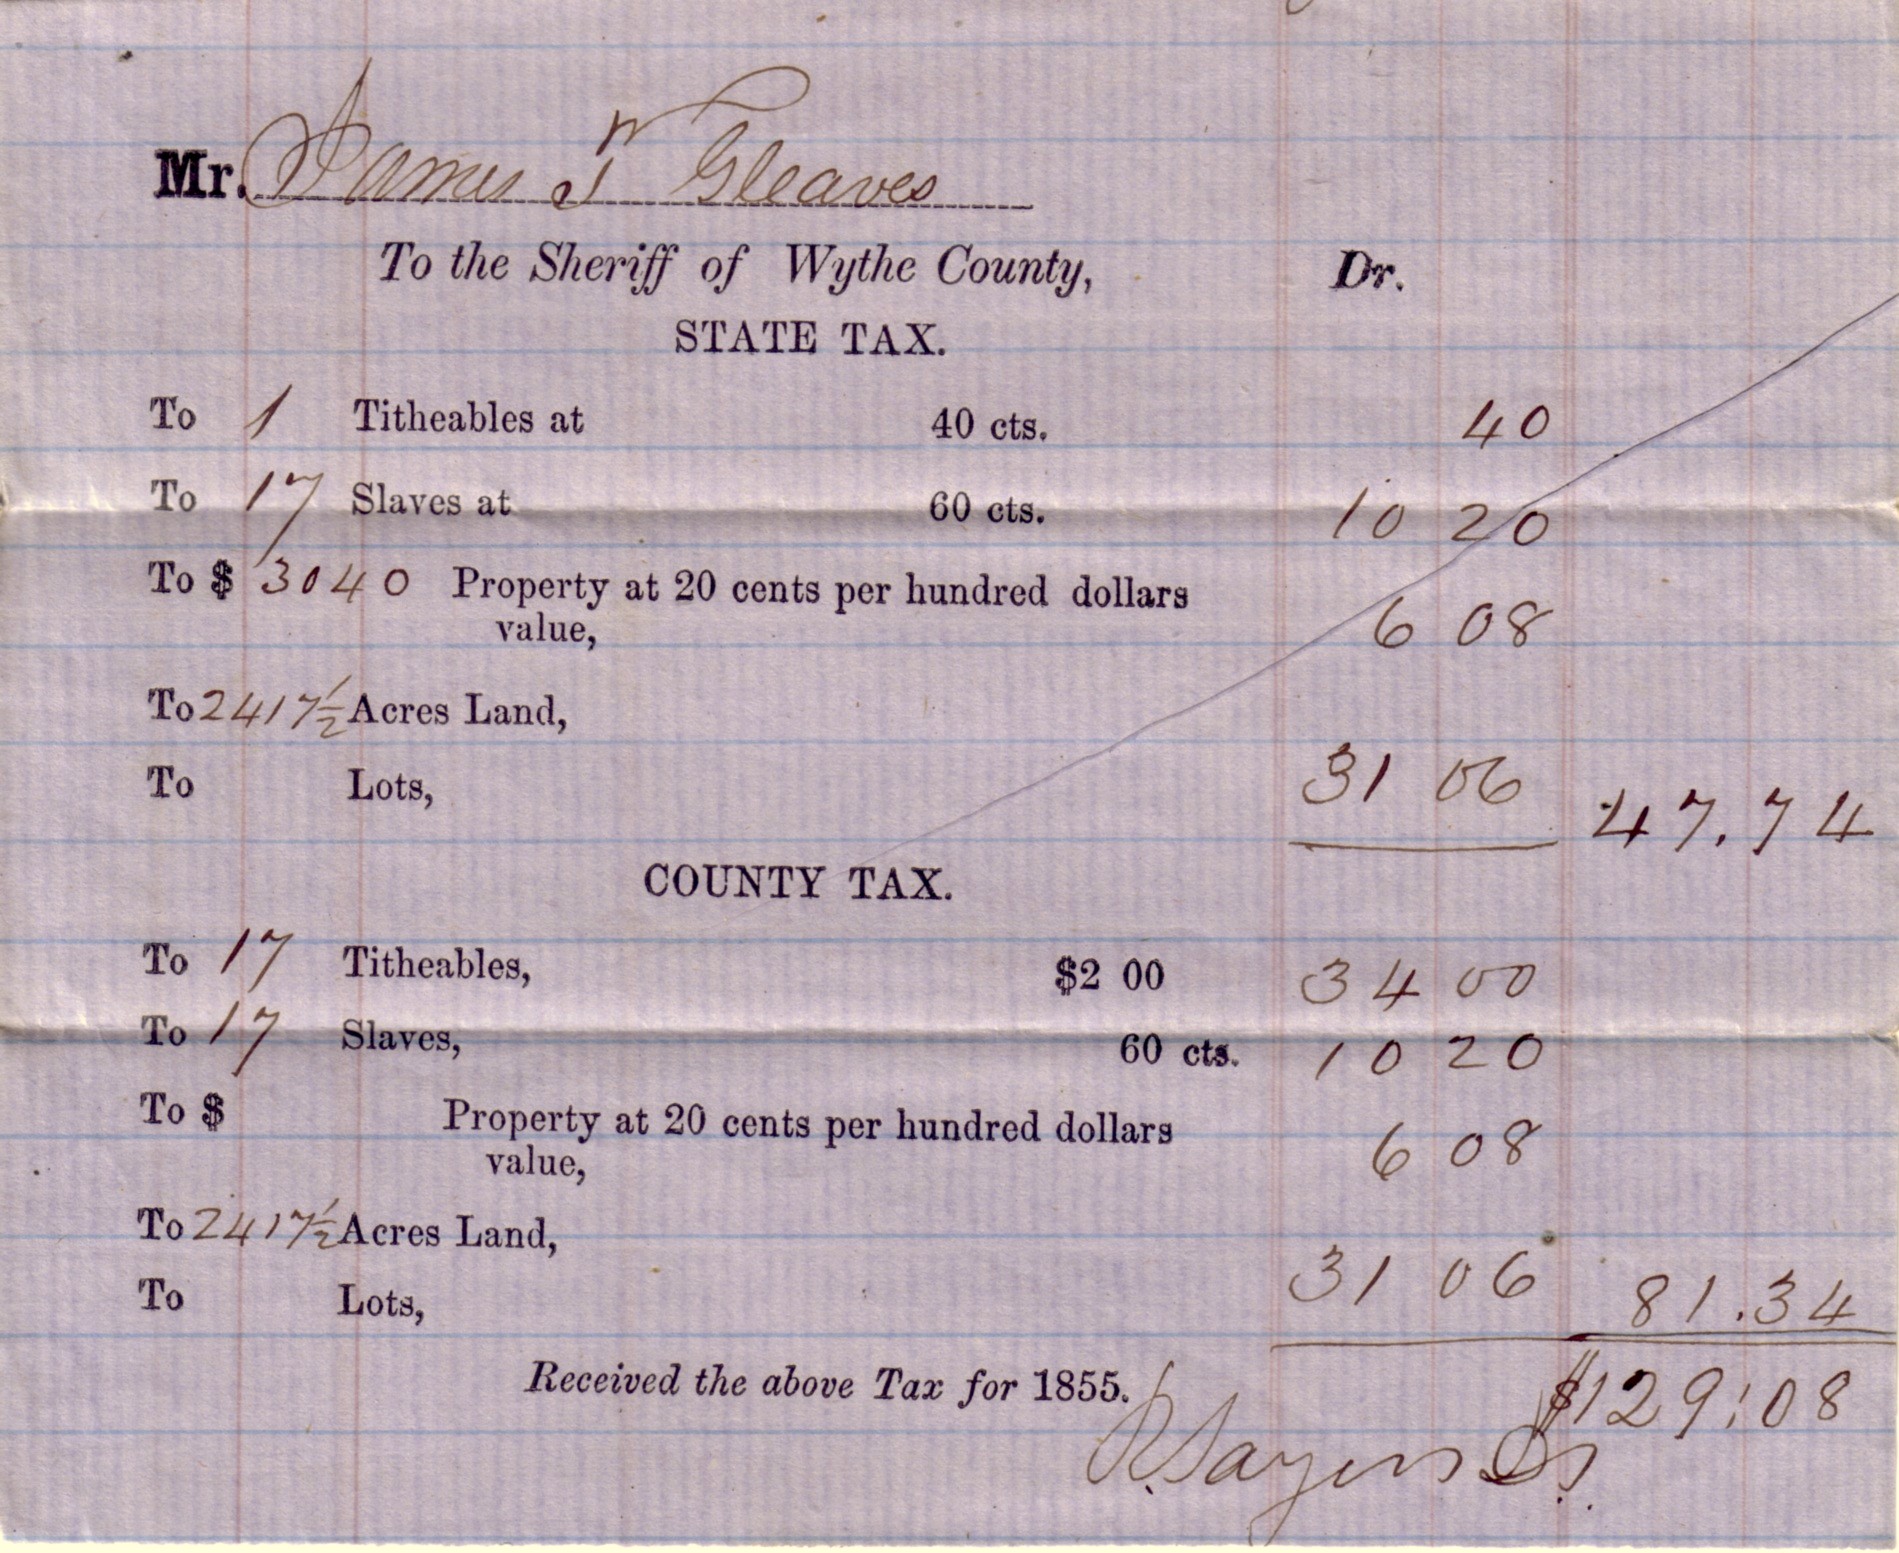 Mr. James T Gleaves
To the Sheriff of Wythe County, Dr.
STATE TAX.
To 1 Titheables at 40 cts. 40
To 17 Slaves at 60 cts. 10 20
To $ 3040 Property at 20 cents per hundred dollars
value, 6 08
To 2417½ Acres Land,
To Lots, 31 06 47.74
COUNTY TAX.
To 17 Titheables, $2 00 34 00
To 17 Slaves, 60 cts. 10 20
To $ Property at 20 cents per hundred dollars
value, 6 08
To 2417½ Acres Land,
To Lots, 31 06 81.34
Received the above Tax for 1855. $129:08
R Sayers Ds.